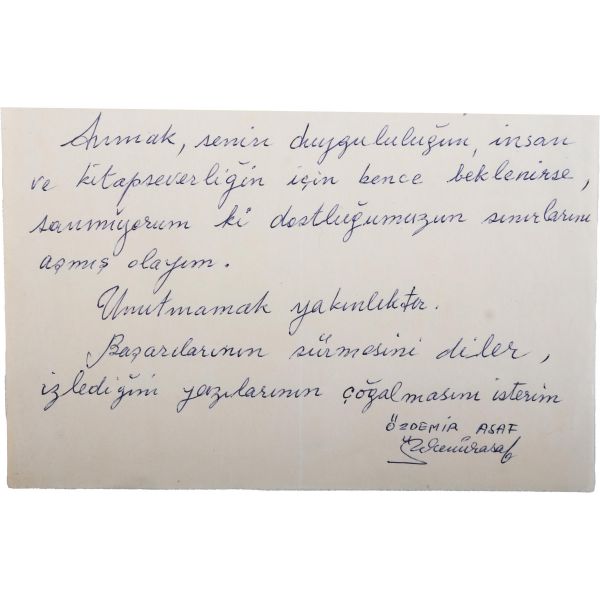 Anmak, senin duygululuğun, insan
ve kitapseverliğin için bence beklenirse,
sanmıyorum ki dostluğumuzun sınırlarını
aşmış olayım.
Unutmamak yakınlıktır.
Başarılarının sürmesini diler,
izlediğim yazılarının çoğalmasını isterim
ÖZDEMİR ASAF
Özdemirasaf